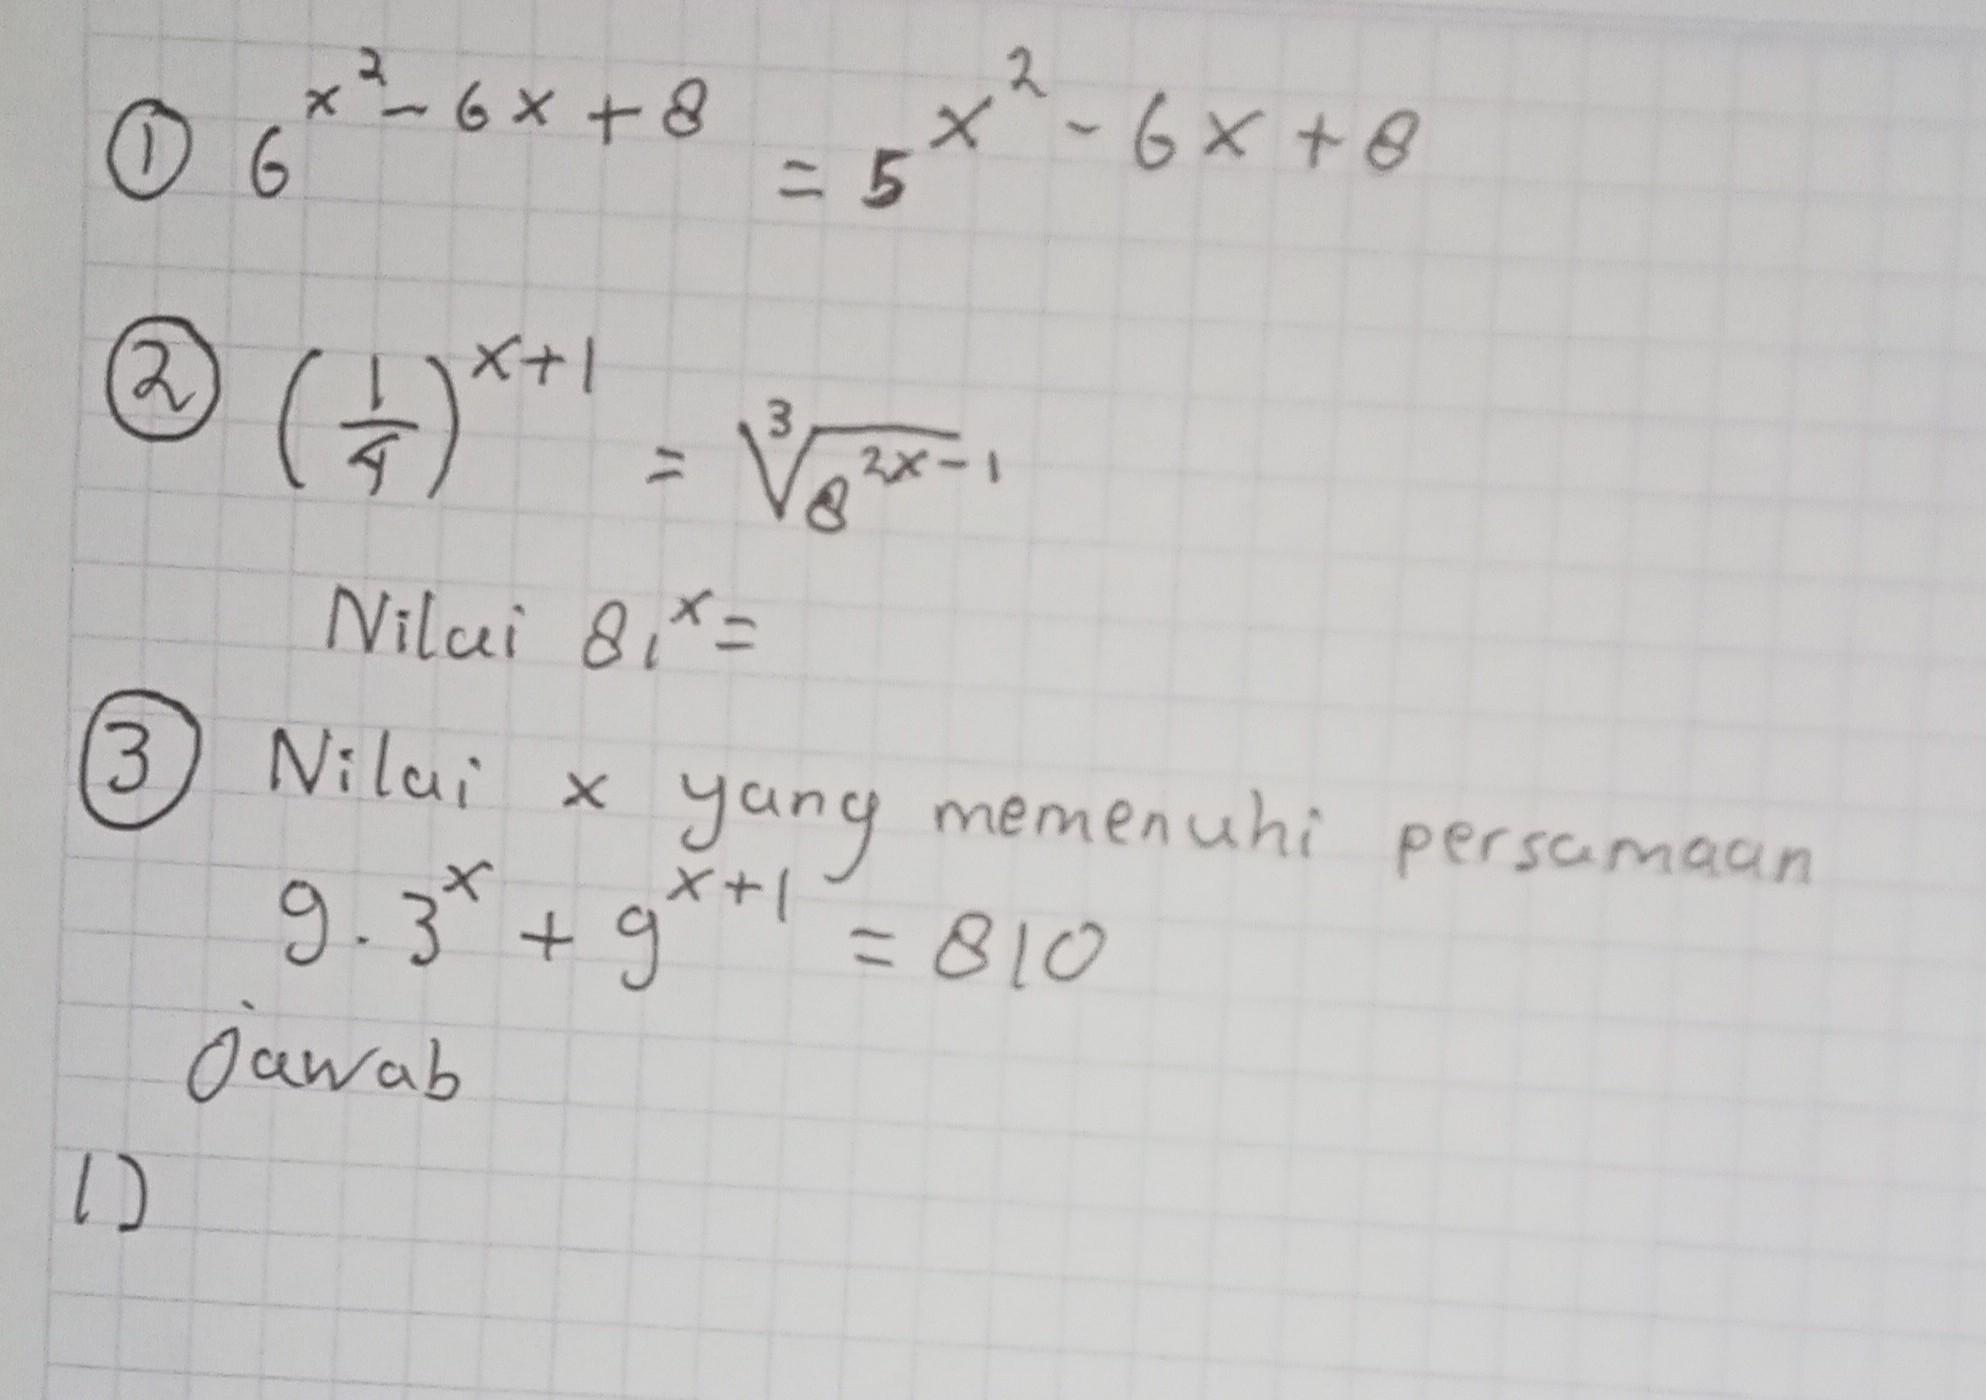 ① 6^{x^2 - 6x + 8} = 5^{x^2 - 6x + 8}
② (1/4)^{x+1} = ∛(8^{2x-1})
Nilai 81^x =
③ Nilai x yang memenuhi persamaan
9 . 3^x + 9^{x+1} = 810
Jawab
1)